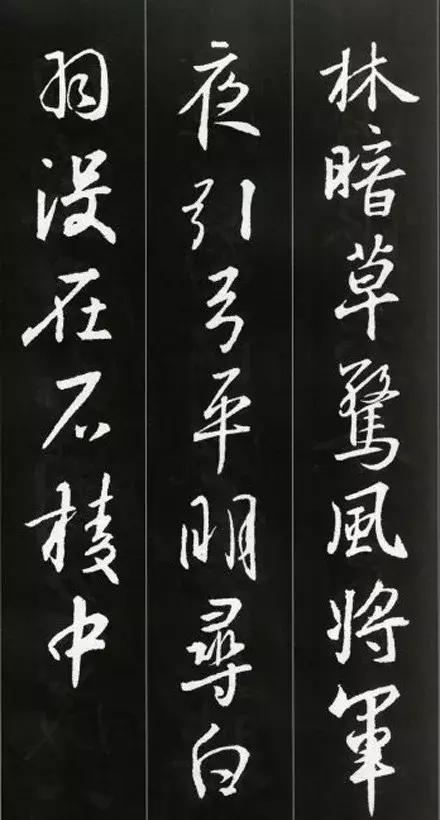 林暗草驚風將軍
夜引弓平明尋白
羽沒在石棱中